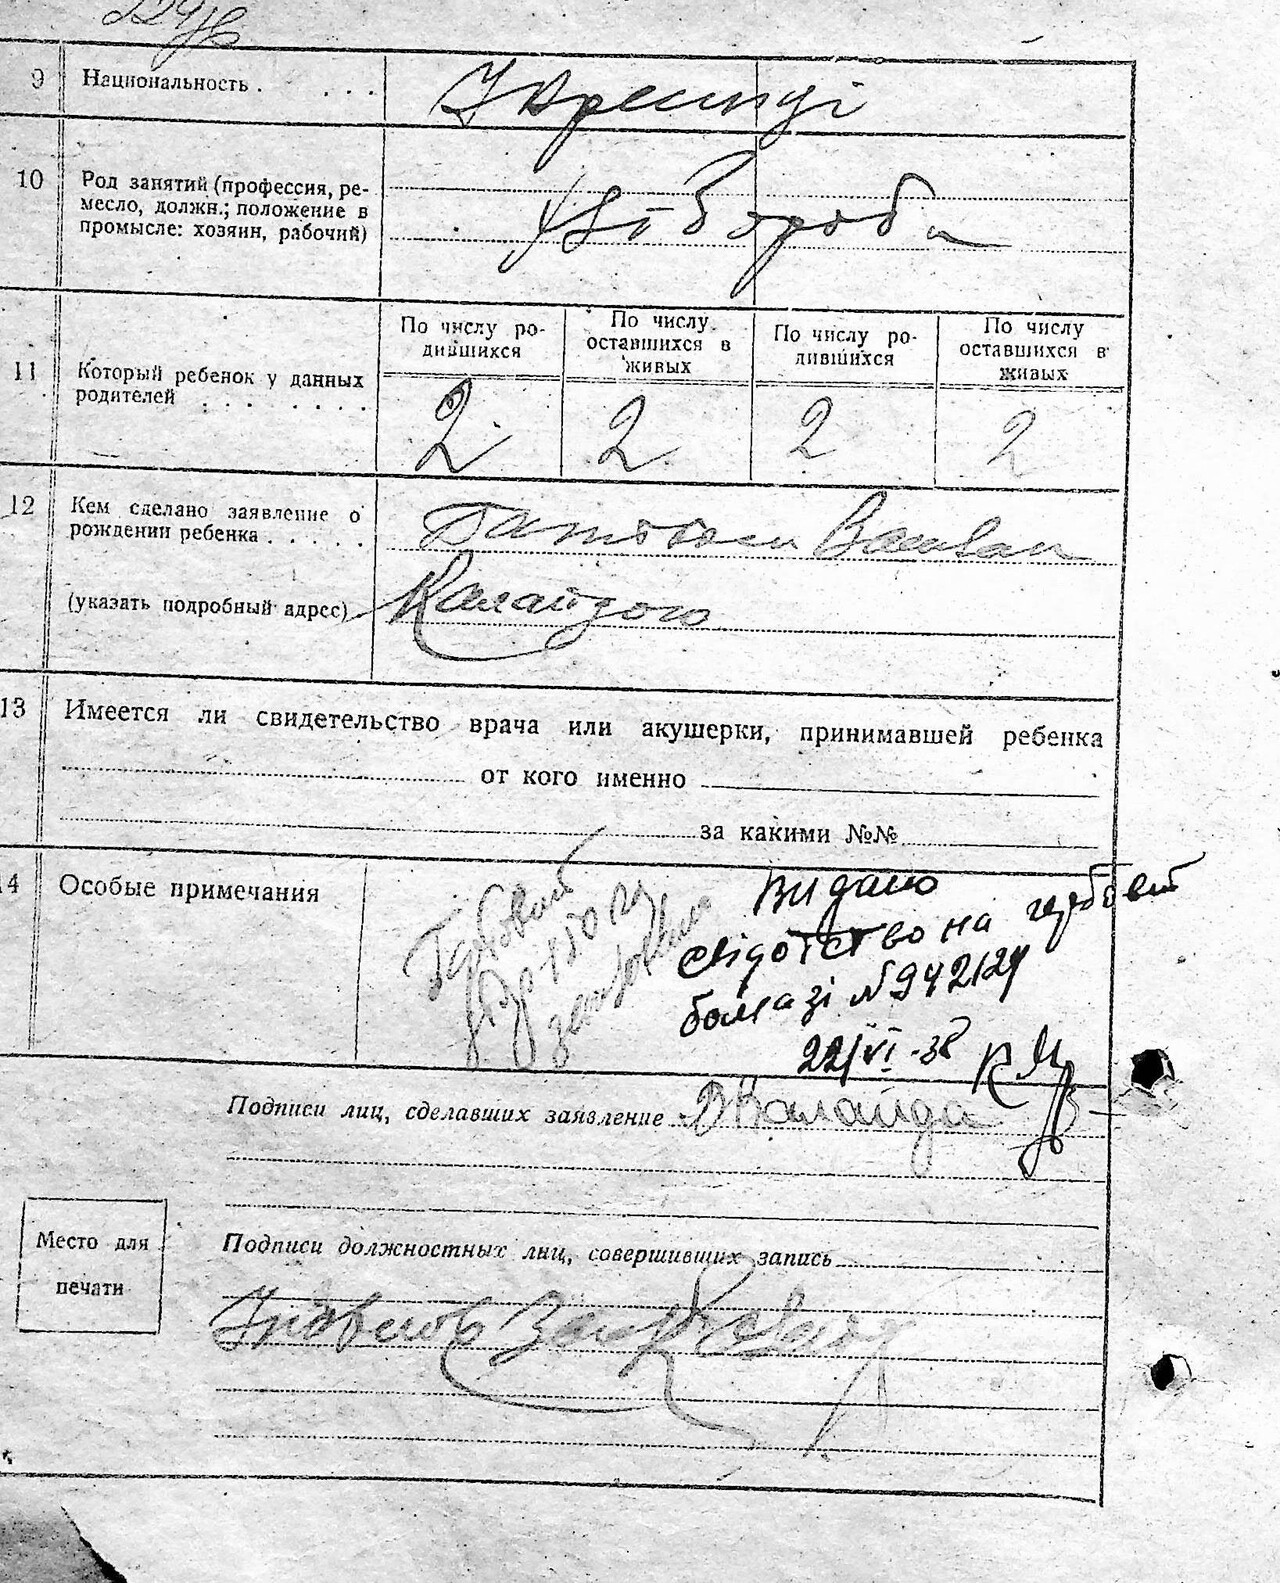 9 Национальность . . . .
Українці
10 Род занятий (профессия, ре-
месло, должн.; положение в
промысле: хозяин, рабочий)
Хлібороби
11 Который ребенок у данных
родителей . . . . . . . .
По числу ро-
дившихся
По числу
оставшихся в
живых
По числу ро-
дившихся
По числу
оставшихся в
живых
2 2 2 2
12 Кем сделано заявление о
рождении ребенка . . . . .
(указать подробный адрес)
Батьком
Калайдою
13 Имеется ли свидетельство врача или акушерки, принимавшей ребенка
от кого именно
за какими №№
14 Особые примечания
Видано
свідотство на гербовій
бомазі № 942124
22/VI-38
Подписи лиц, сделавших заявление В Калайда
Место для
печати
Подписи должностных лиц, совершивших запись